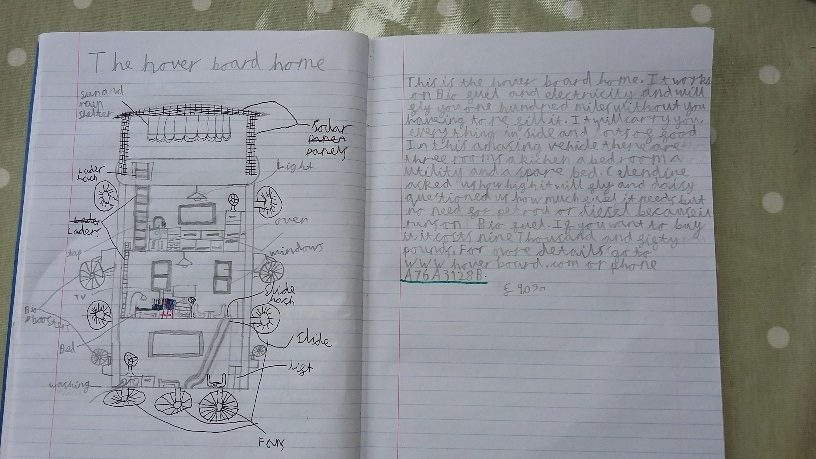 The hover board home
sun and
rain
shelter
Solar
panels
Light
Lader
hach
Lader
oven
tap
windows
TV
Slide
hach
Bio
boosters
Bed
Slide
light
washing
Fans
This is the hover board home. It works
on Bio fuel and electricity and will
fly you one hundred miles without you
having to refill it. It will carry you,
every thing in side and
In this amasing vehicle there are
three rooms a kichen a bedroom a
utility and a spare bed. Celendine
asked us how high it will fly and daisy
questioned us how much fuel it needs but
no need for petrol or diesel because it
runs on Bio fuel. If you want to buy
it it costs nine thousand and
pounds. For more details go to
www.hoverboard.com or phone
A76A3128B.